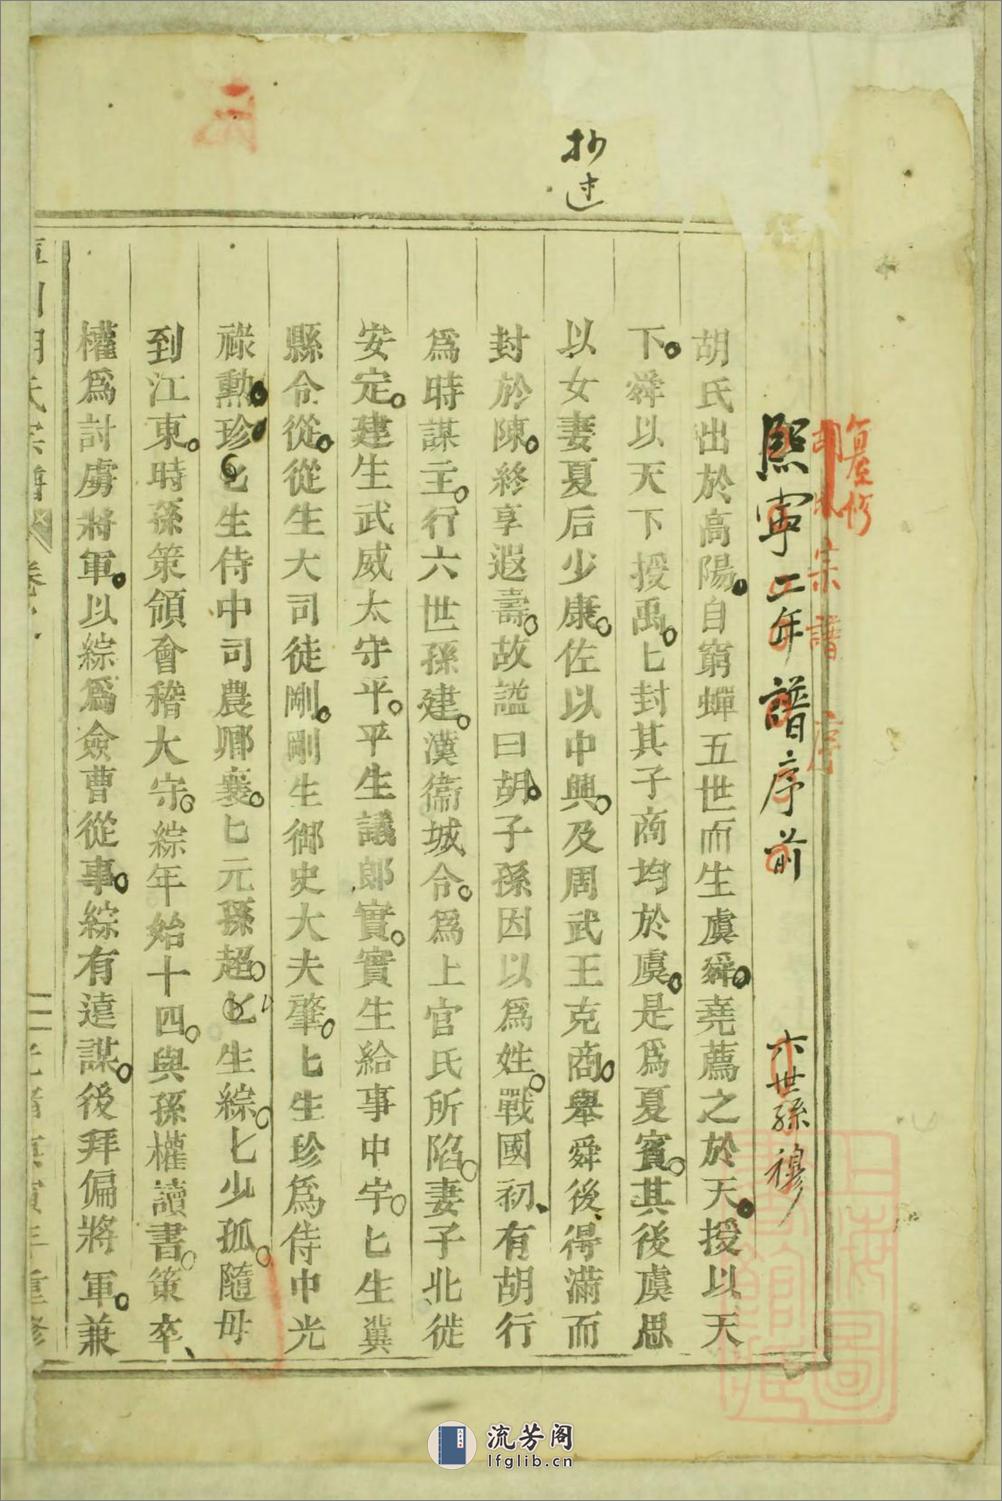 抄过
重修
宗譜
序
熙寧二年譜序前　六世孫穆
胡氏出於高陽自窮蟬五世而生虞舜堯薦之於天授以天
下舜以天下授禹匕封其子商均於虞是爲夏賓其後虞思
以女妻夏后少康佐以中興及周武王克商舉舜後得滿而
封於陳終享遐壽故謚曰胡子孫因以爲姓戰國初有胡行
爲時謀主行六世孫建漢衞城令爲上官氏所陷妻子北徙
安定建生武威太守平平生議郎實實生給事中宇匕生冀
縣令從從生大司徒剛剛生御史大夫肇匕生珍爲侍中光
祿勳珍匕生侍中司農卿襄匕元孫超匕生綜匕少孤隨母
到江東時孫策領會稽大守綜年始十四與孫權讀書策卒
權爲討虜將軍以綜爲僉曹從事綜有遠謀後拜偏將軍兼
胡氏宗譜
重修
上海圖
書館藏
流芳阁
lfglib.cn